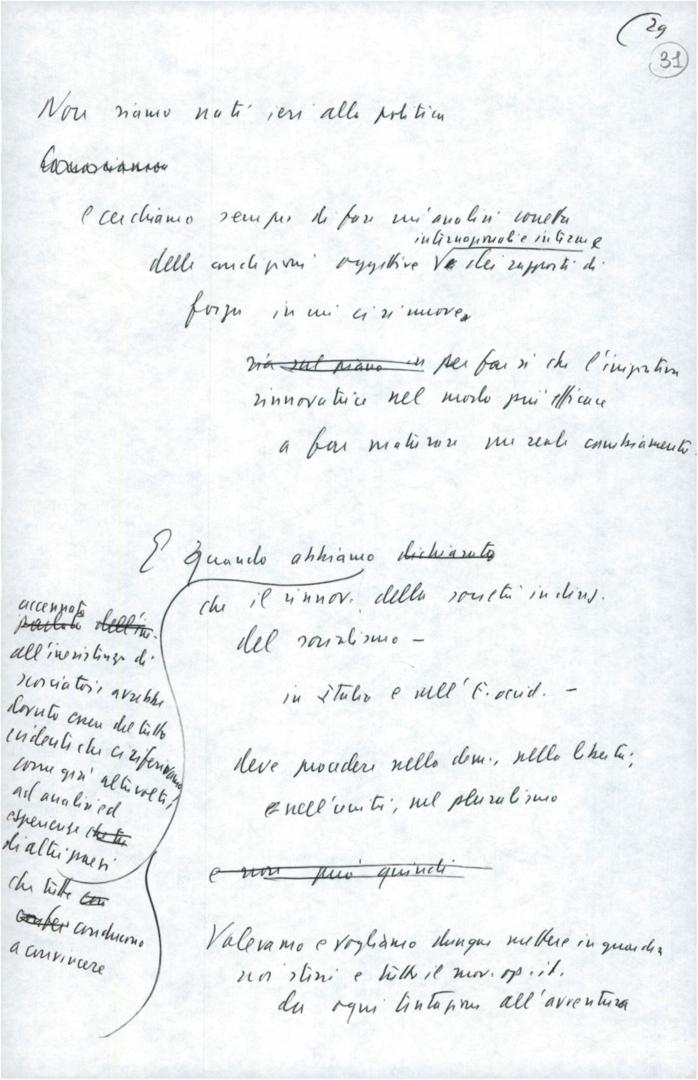 29
31
Non siamo nati ieri alla politica
e cerchiamo sempre di fare un'analisi corretta
internazionali e interne
delle condizioni oggettive e dei rapporti di
forza in cui ci si muove
sia sul piano in per far sì che l'iniziativa
rinnovatrice nel modo più efficace
a fare maturare un reale cambiamento.
E quando abbiamo dichiarato
che il rinnov. della società in direz.
del socialismo –
in Italia e nell'E. occid. –
deve procedere nella dem., nella libertà,
e nell'unità, nel pluralismo
e non può quindi
Volevamo e vogliamo dunque mettere in guardia
noi stessi e tutto il mov. op. it.
da ogni tentazione all'avventura
accennato
parlato dell'in.
all'inesistenza di
scorciatoie avrebbe
dovuto essere del tutto
evidente che ci riferivamo
come già altre volte,
ad analisi ed
esperienze che tu
di altri paesi
che tutte con
conducono
a convincere